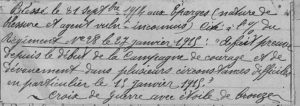 Blessé le 21 Septbre 1914 aux Eparges (nature de
blessure et agent vuln. inconnus) Cité à l'O. du
Régiment N° 28 le 27 janvier 1915: "a fait preuve
depuis le début de la Campagne de courage et de
dévouement dans plusieurs circonstances difficiles
en particulier le 13 janvier 1915."
Croix de Guerre avec étoile de bronze